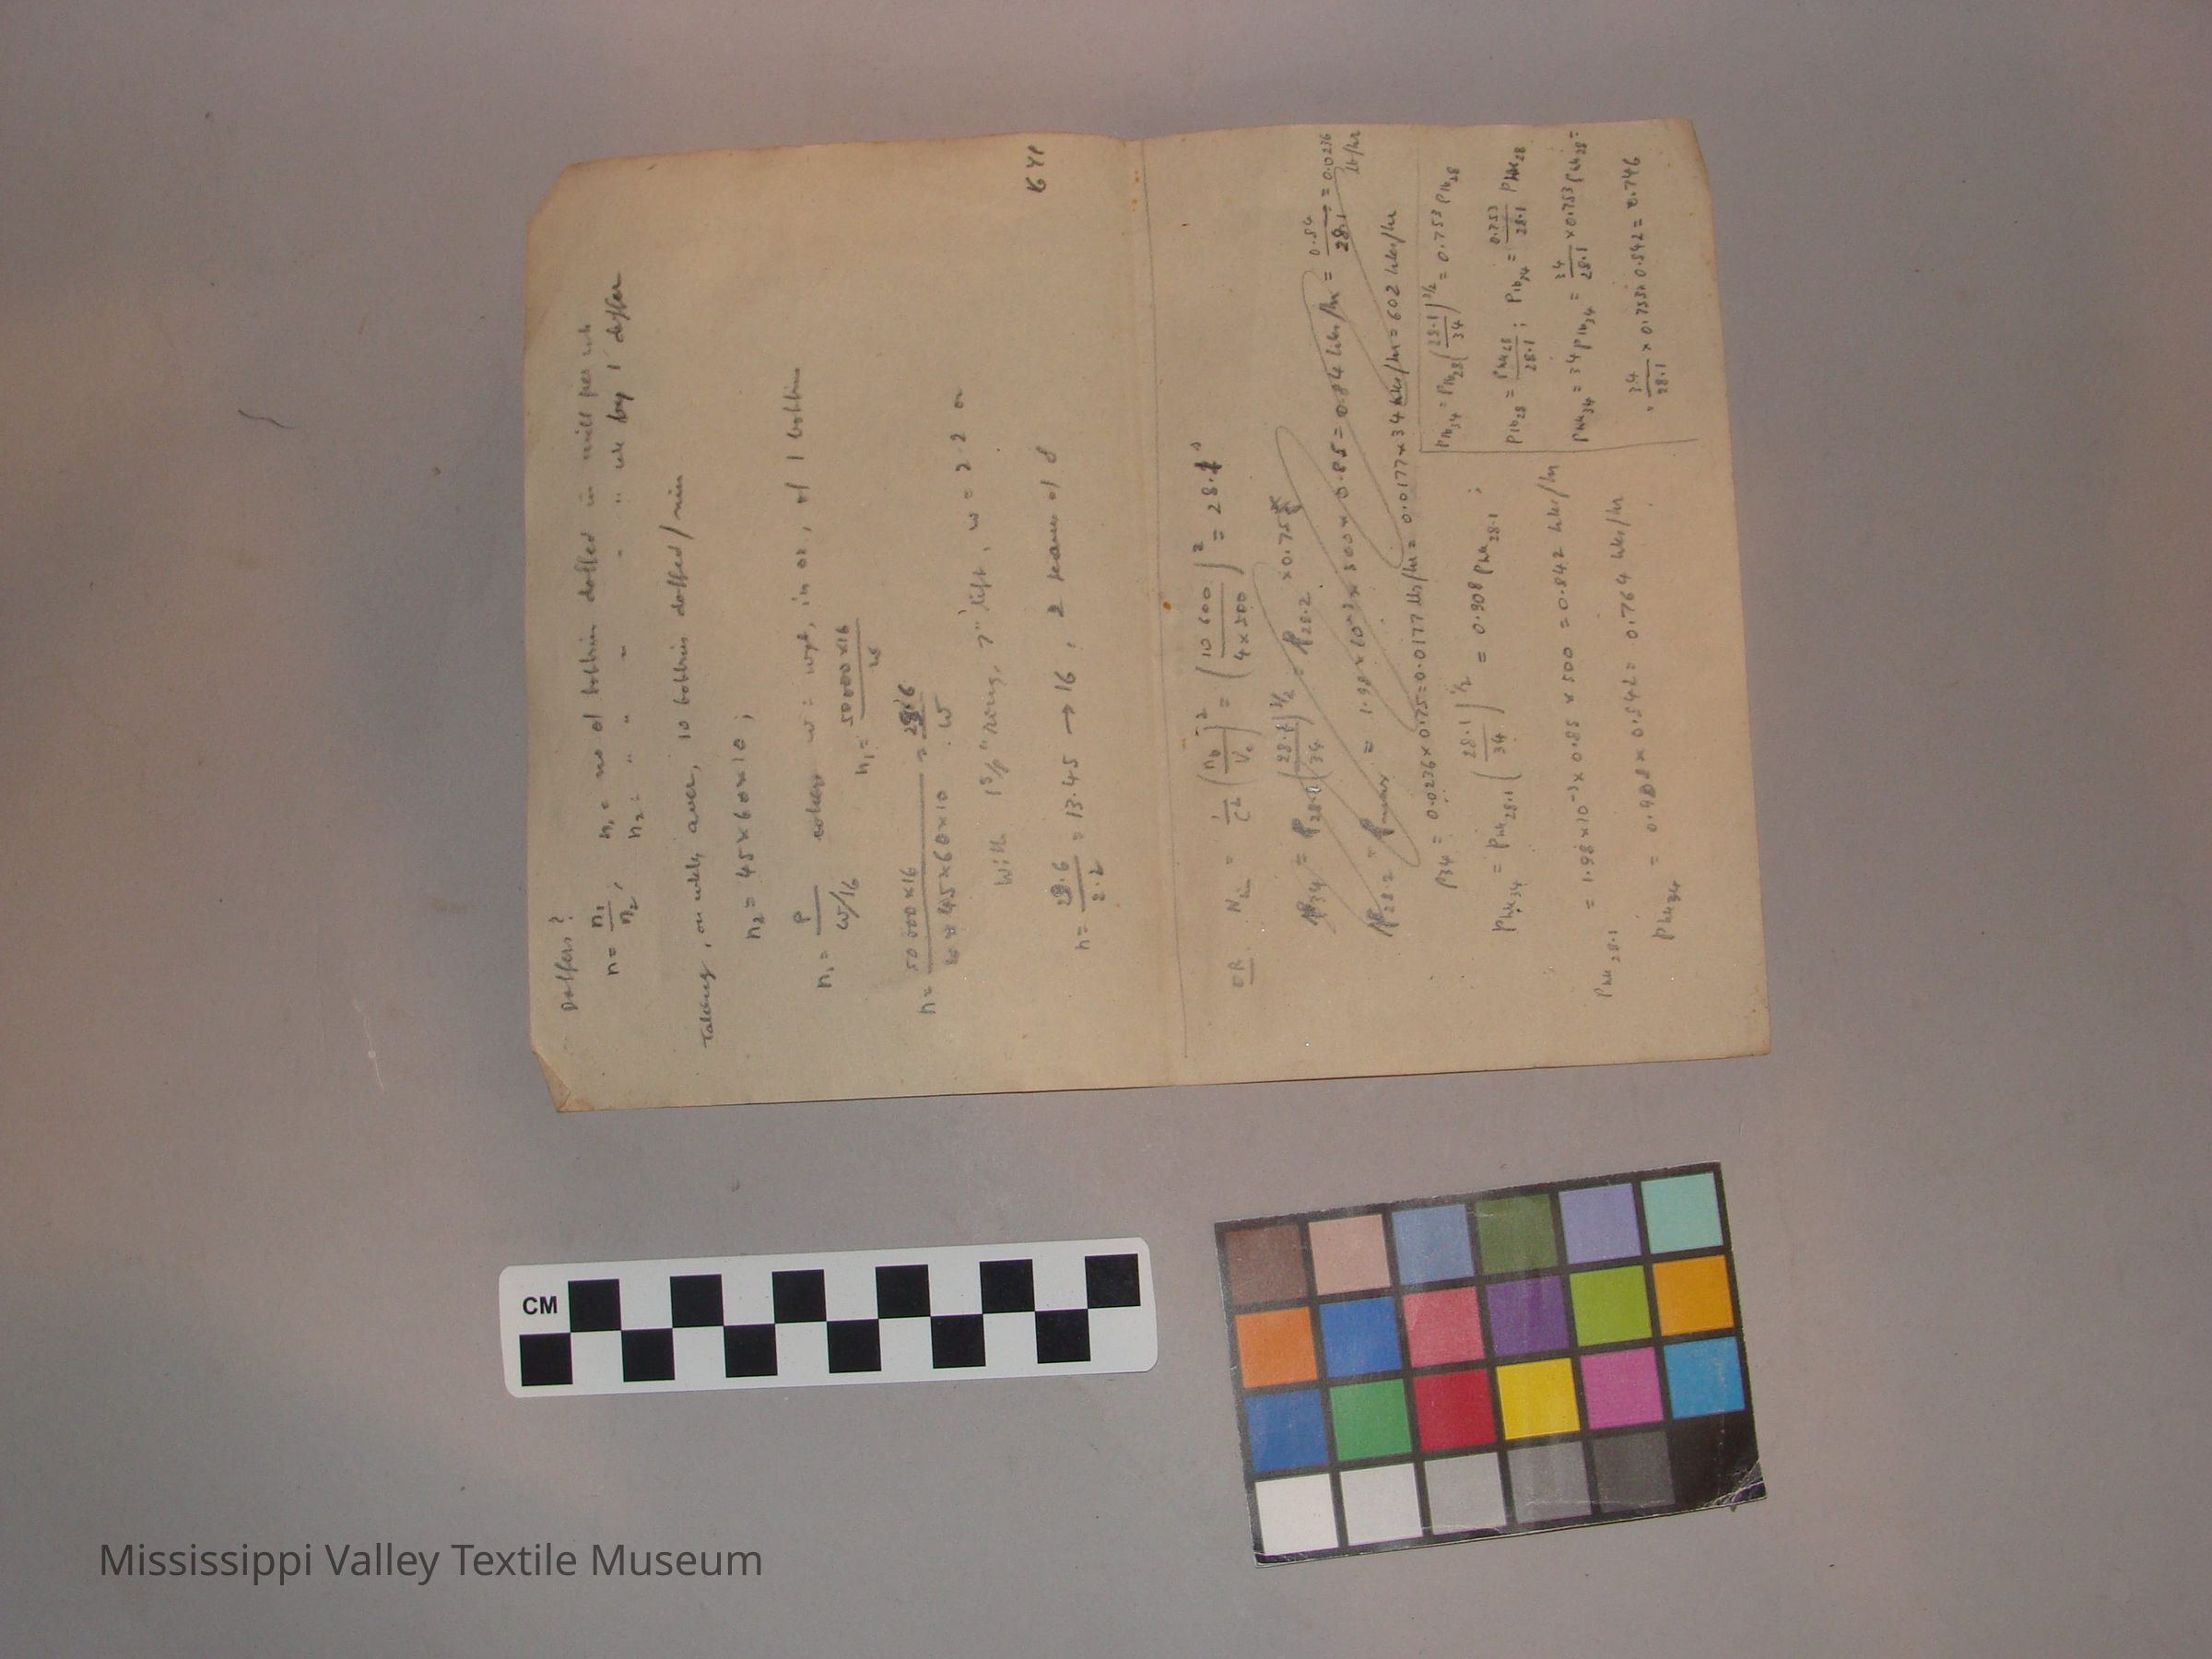 Doffers?
n = n₁/n₂, n₁ = no of bobbins doffed in mill per wk
n₂ = " " " - " wk by 1 doffer
Taking, on wkly aver, 10 bobbins doffed/min
n₂ = 45×60×10;
n₁ = P/(w/16) where w = wgt, in oz, of 1 bobbin
n₁ = (50000×16)/w
n = (50000×16)/(w × 45×60×10) = 29.6/w
With 1⅝" ring, 7" lift, w = 2.2 oz
n = 29.6/2.2 = 13.45 → 16, 2 teams of 8
OR = 1/C² (n_b/V_c)² = (10600/(4×500))² = 28.1ˢ
P₃₄ = P₂₈.₁(28.1/34)^3/2 = P₂₈.₂ × 0.75
P₂₈.₂ = P_max = 1.98×10⁻³×500×0.85 = 0.84 hks/hr = 0.84/28.1 = 0.0236 lb/hr
P₃₄ = 0.0236×0.75 = 0.0177 lbs/hr = 0.0177×34 hks/hr = 602 hks/hr
P_hk₃₄ = P_hk₂₈.₁(28.1/34)^1/2 = 0.908 P_hk₂₈.₁;
P_hk₂₈.₁ = 1.98×10⁻³×0.85×500 = 0.842 hks/hr
P_hk₃₄ = 0.908×0.842 = 0.764 hks/hr
P_lb₃₄ = P_lb₂₈(28.1/34)^3/2 = 0.753 P_lb₂₈
P_lb₂₈ = P_hk₂₈/28.1; P_lb₃₄ = 0.753/28.1 P_hk₂₈
P_hk₃₄ = 34 P_lb₃₄ = 34/28.1 × 0.753 P_hk₂₈ =
= 34/28.1 × 0.753 × 0.842 = 0.746
CM
Mississippi Valley Textile Museum